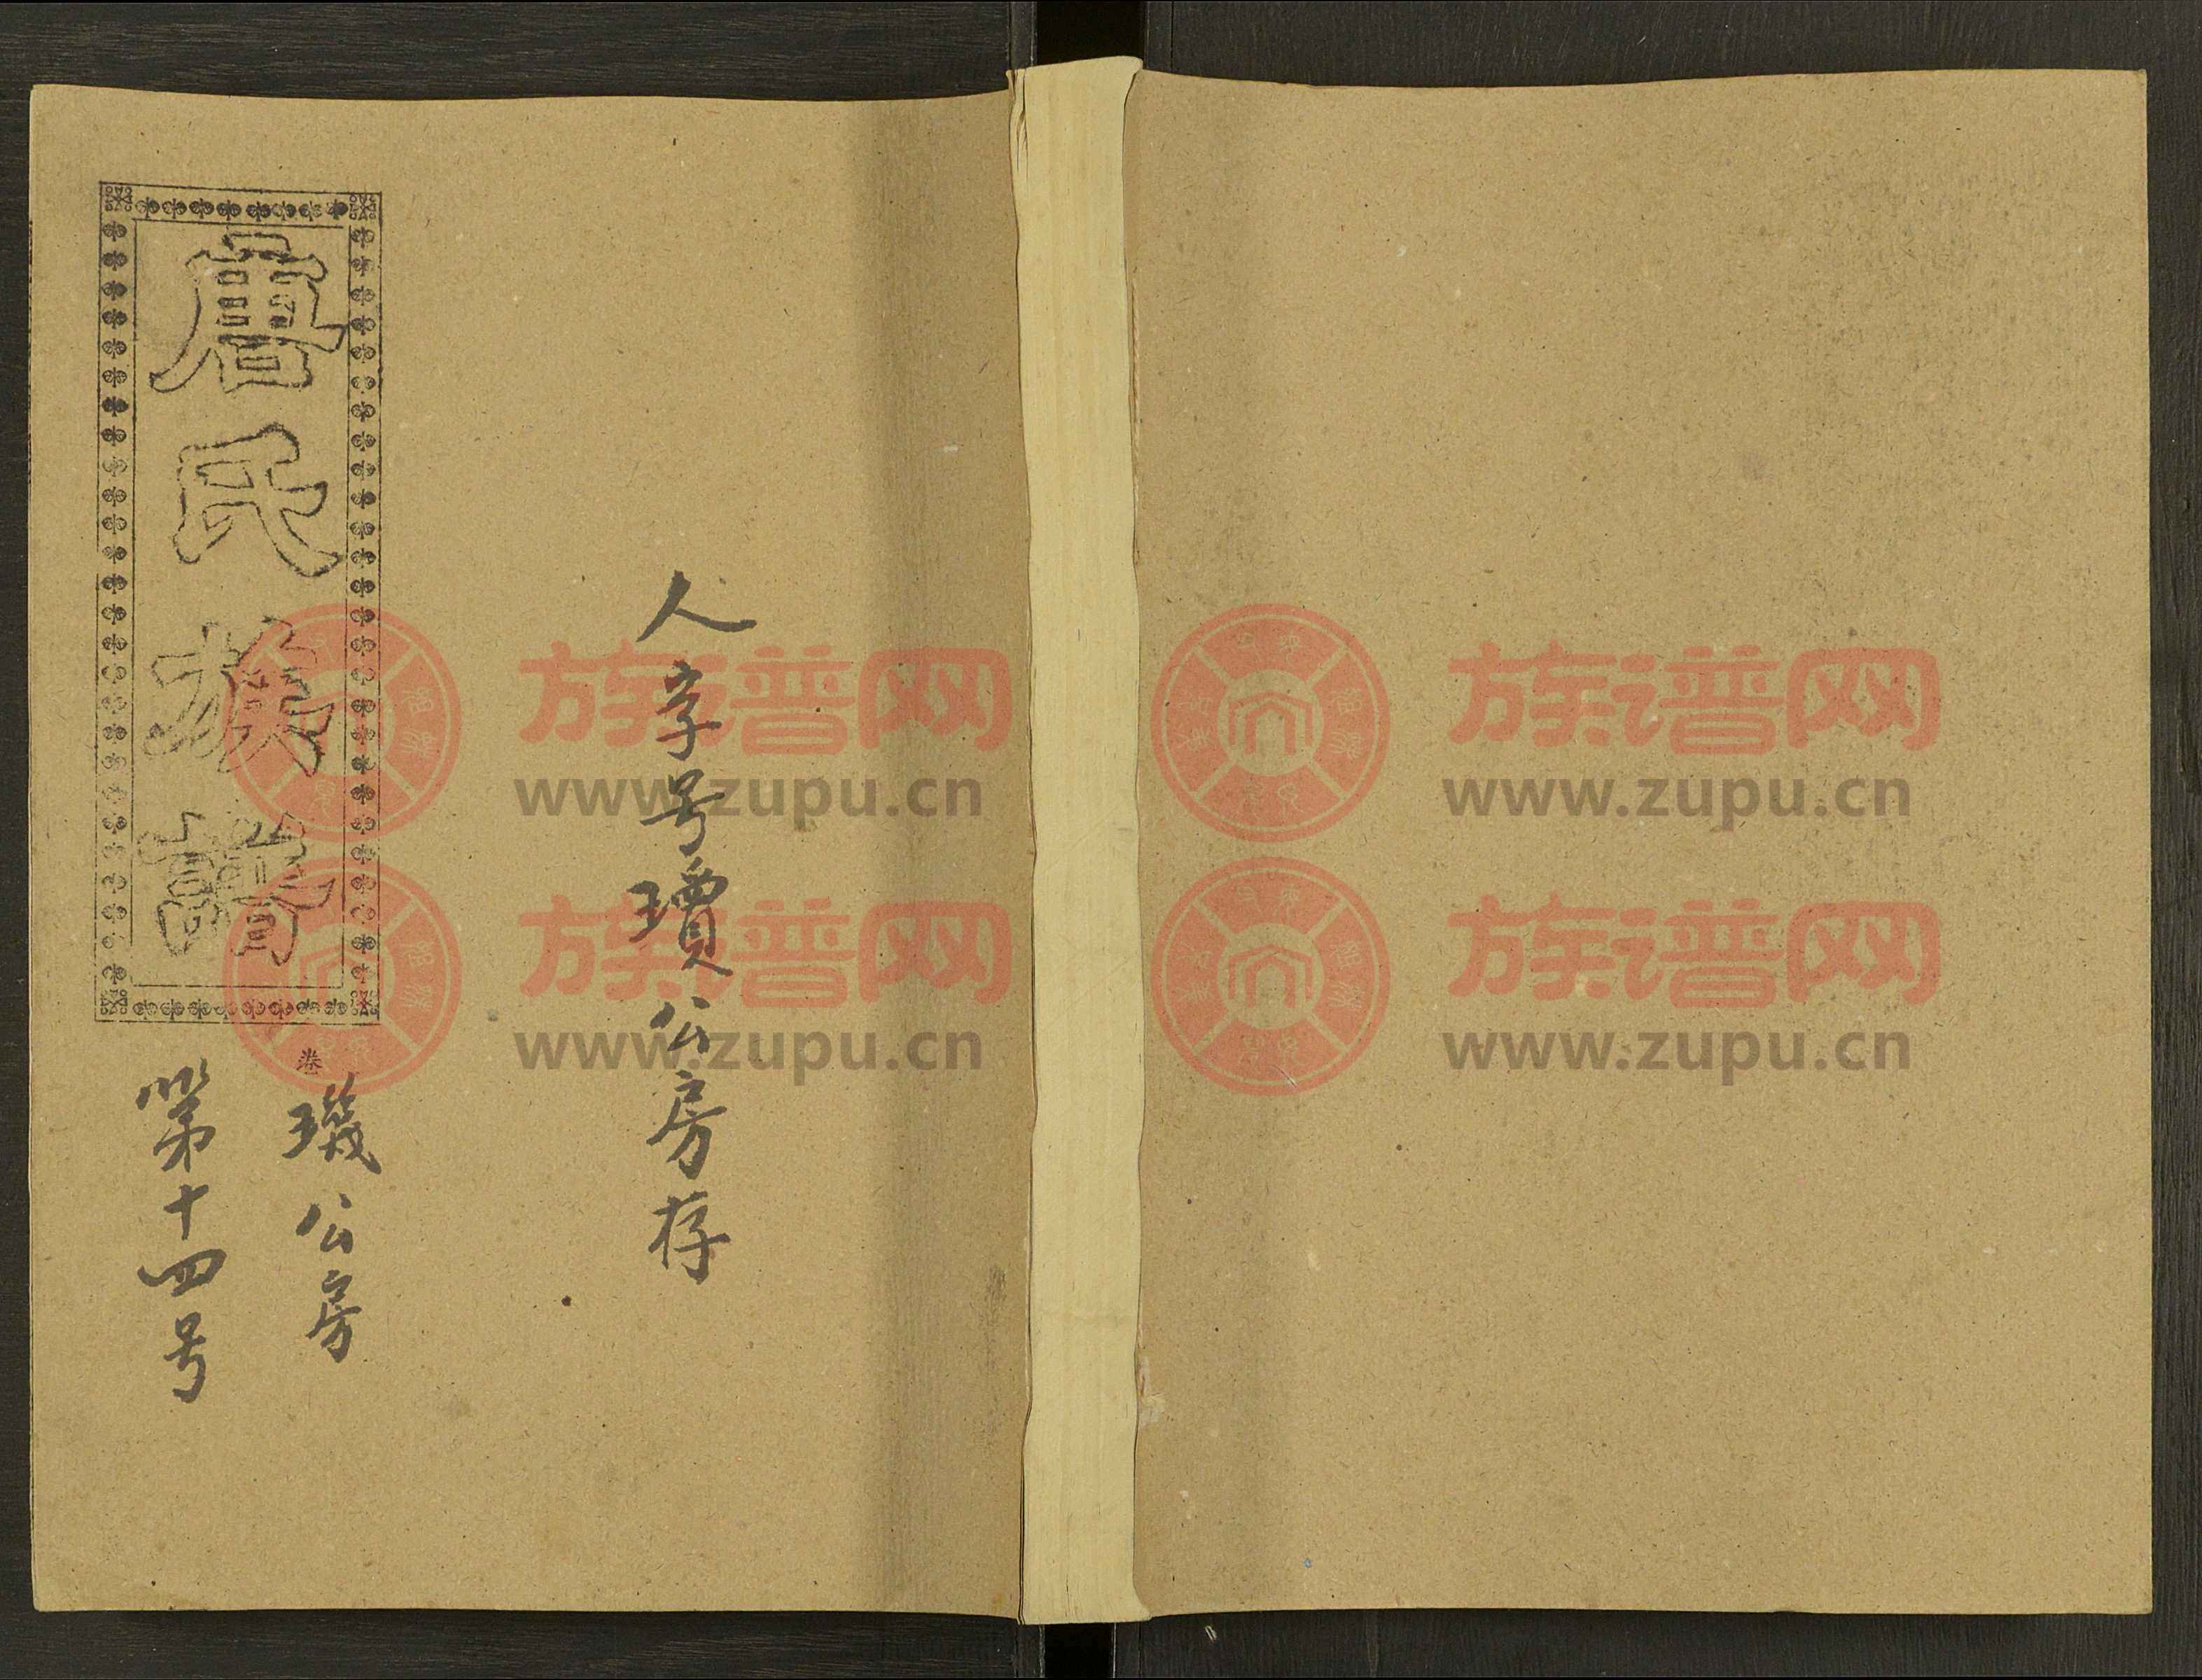 人字号瓊公房存
唐氏族譜
卷
璣公房
第十四号
族谱网
www.zupu.cn
族谱网
www.zupu.cn
族谱网
www.zupu.cn
族谱网
www.zupu.cn